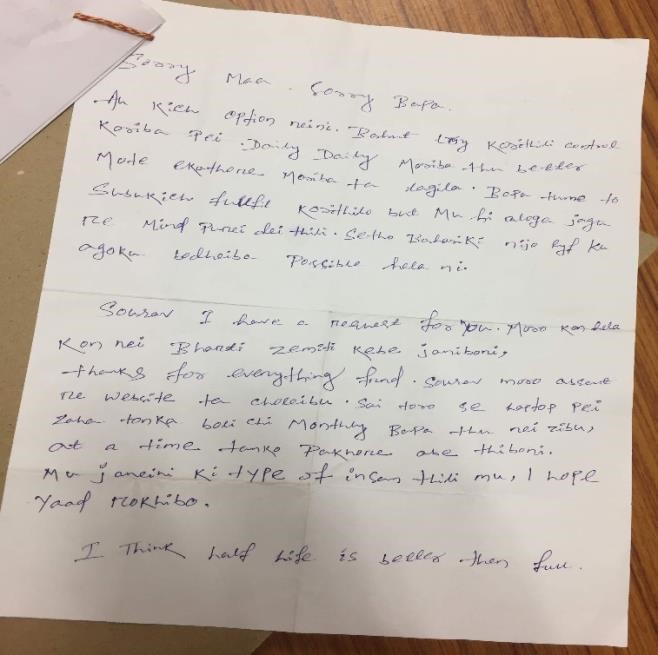 Sorry Maa. Sorry Bapa.
Au kichi option neini. Bahut try korithili control
Koriba Pei. Daily Daily Moriba thu better
Mote ekathore Moriba ta lagila. Bapa tume to
Sabukichi fullfil korithilo but Mu hi aloga jaga
re Mind Purei dei thili. Setho Bahariki nijo lyf ku
agoku badheiba Possible hela ni.
Sourav I have a request for you. Moro kon hela
Kon nei Bhandi zemiti kebe janiboni,
thanks for everything fund. Sourav moro
re website ta choleibu. Sai toro se laptop pei
zaha tonka baki chi Monthly Bapa thu nei zibu,
at a time tanko Pakhore abe thiboni.
Mu janeini ki type of insan thili mu, I hope
Yaad rokhibo.
I Think half life is better then full.